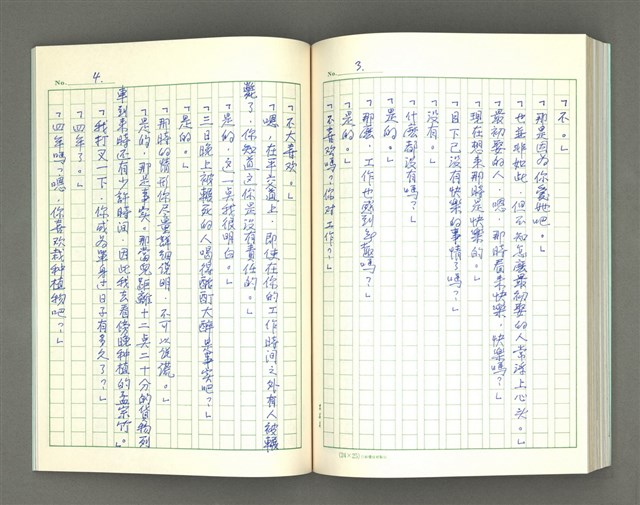 No. 3.
「不。」
「那是因為你愛她吧。」
「也並非如此，但不知怎麼最初娶的人常浮上心头。」
「最初娶的人，嗯，那時看來快樂，快樂嗎？」
「現在想來那時是快樂的。」
「目下已沒有快樂的事情了嗎？」
「沒有。」
「什麼都沒有嗎？」
「是的。」
「那麼，工作也感到乏趣嗎？」
「是的。」
「不喜欢嗎？你对工作？」
(24×25)
No. 4.
「不大喜欢。」
「嗯，在平交道上，即使在你的工作時間之外有人被輾
斃了，你知道這你是沒有責任的。」
「是的，這一点我很明白。」
「三日晚上被輾死的人喝得酩酊大醉是事实吧？」
「是的。」
「那時的情形你尽量詳細說明，不可以說謊。」
「是的，那是事实。那當兒距離十二点二十分的貨物列
車到來時还有少許時间，因此我去看傍晚种植的孟宗竹。」
「我打叉一下，你成為單身过日子有多久了？」
「四年了。」
「四年嗎？嗯，你喜欢栽种植物吧？」